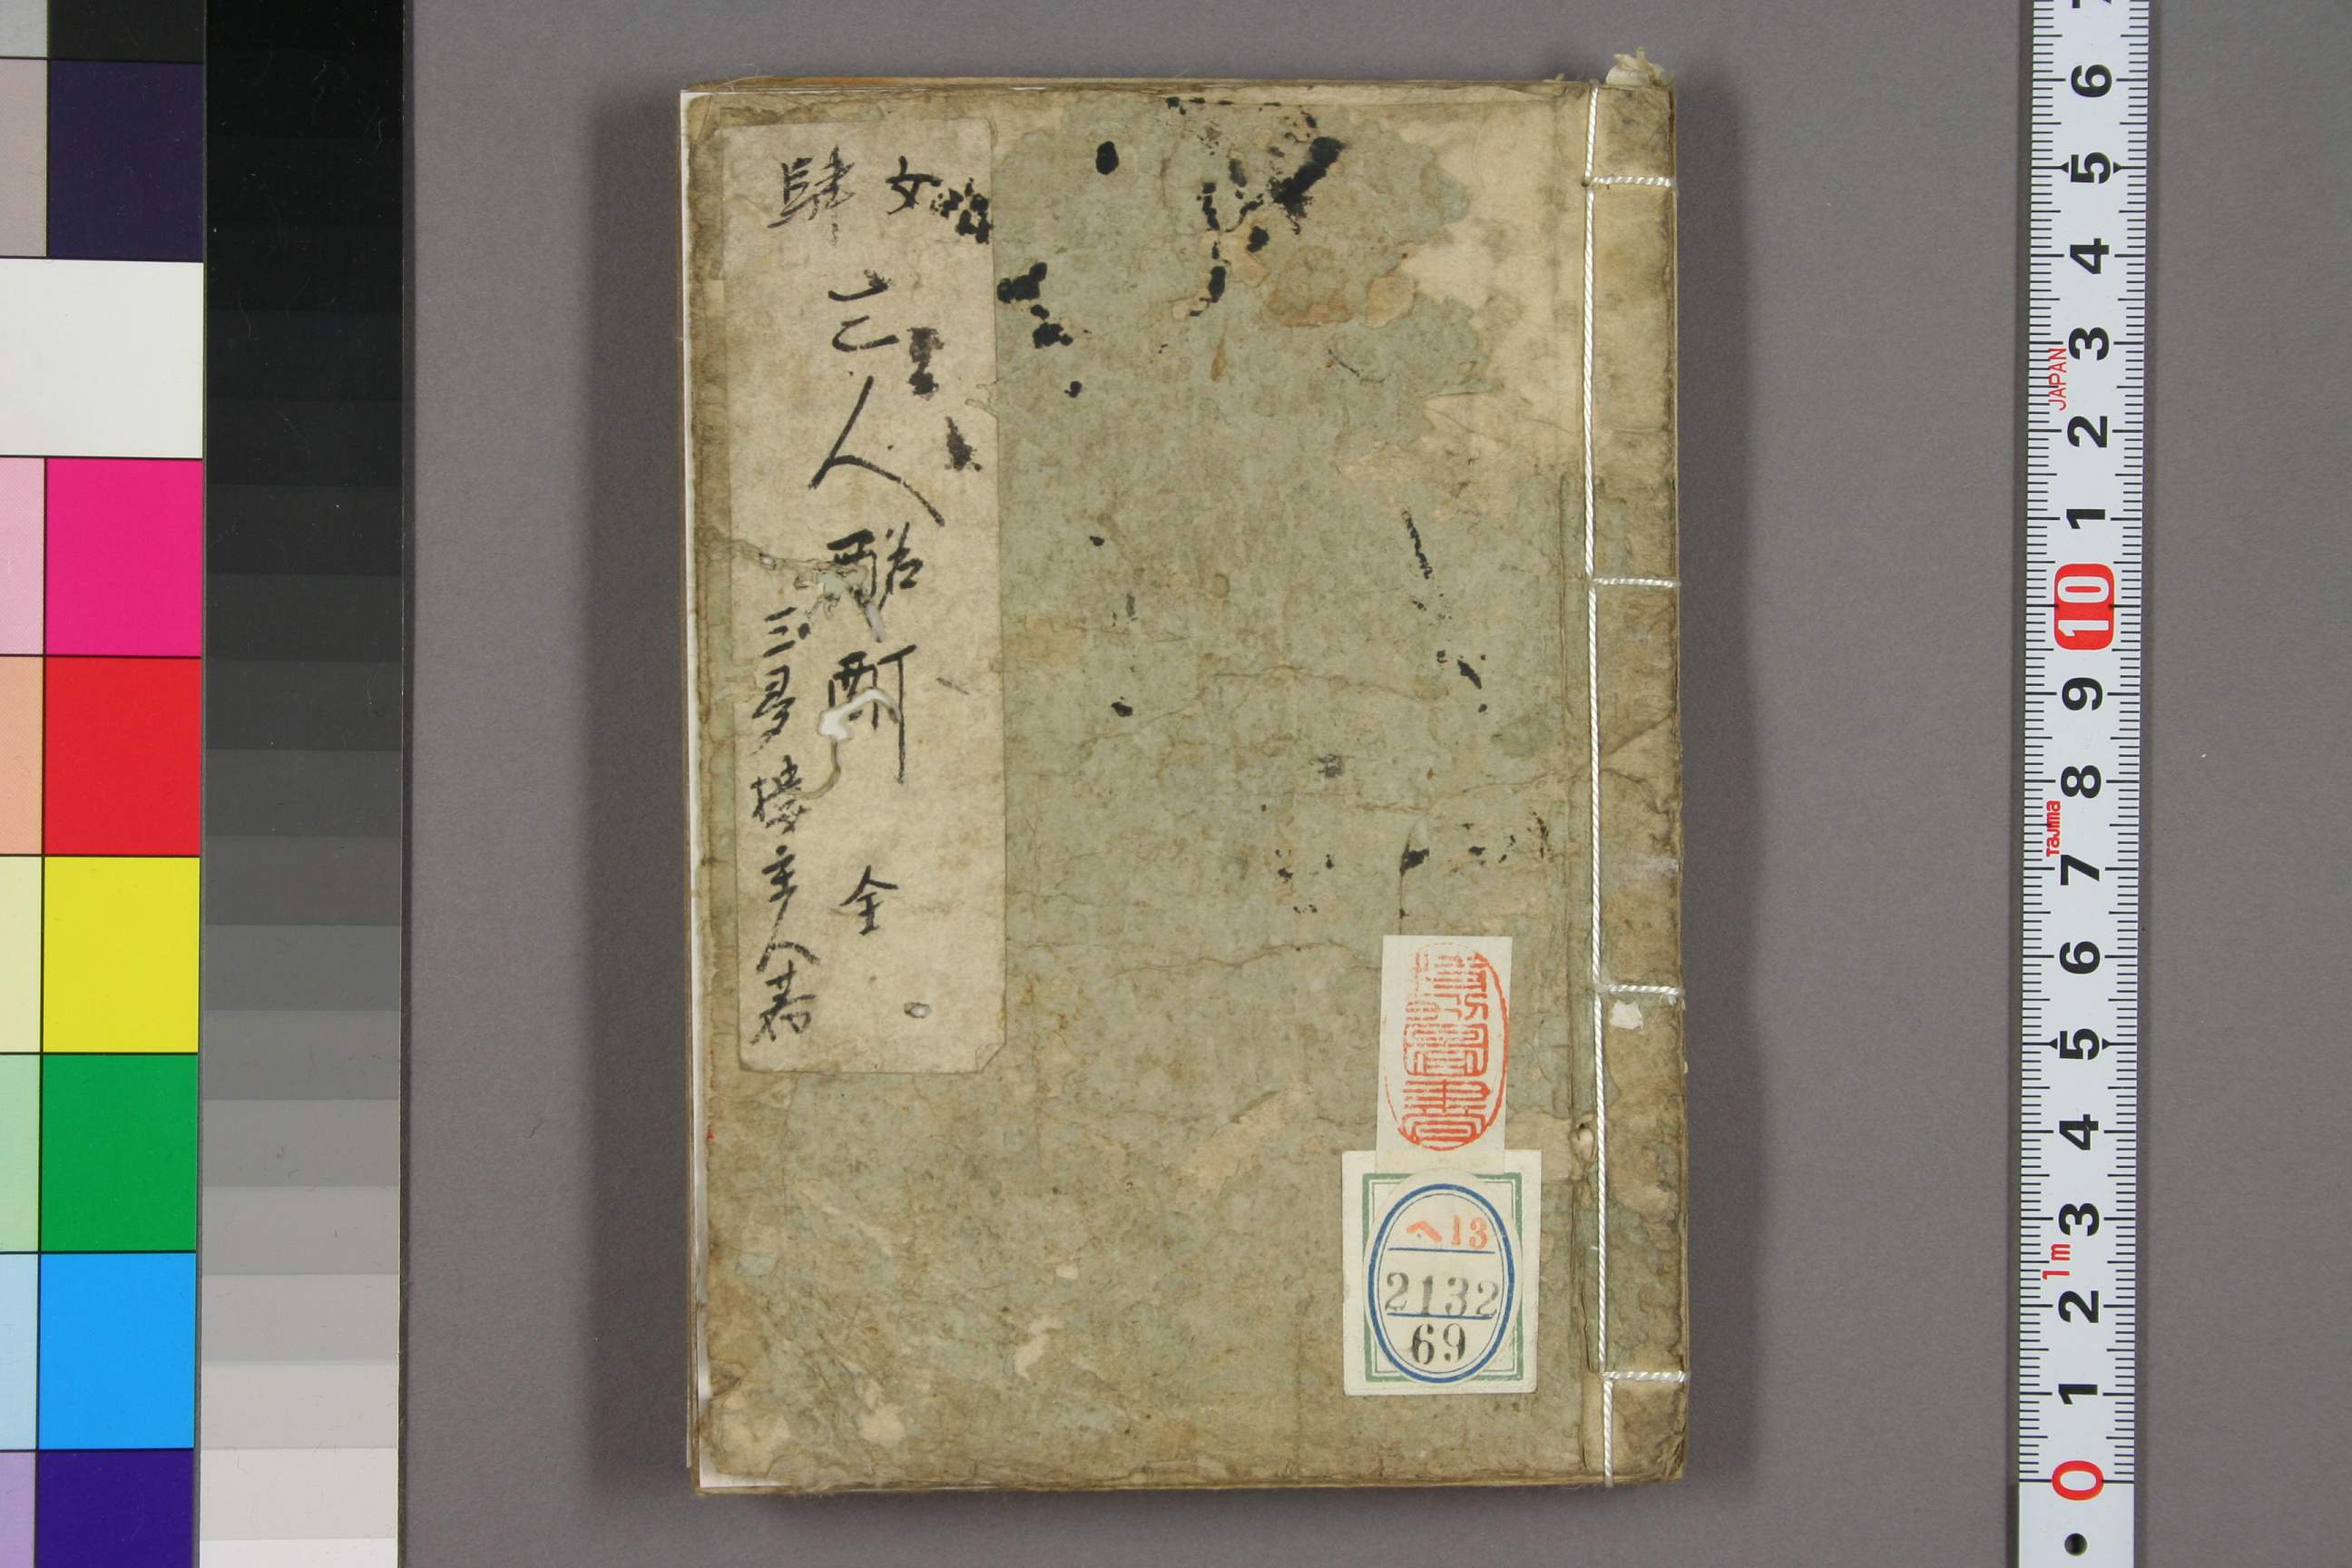 女
肆
三人酩酊 全
三夛楼主人著
ヘ13
2132
69
7
6
5
4
3
JAPAN
2
1
10
9
8
Tajima
7
6
5
4
3
1m
2
1
0